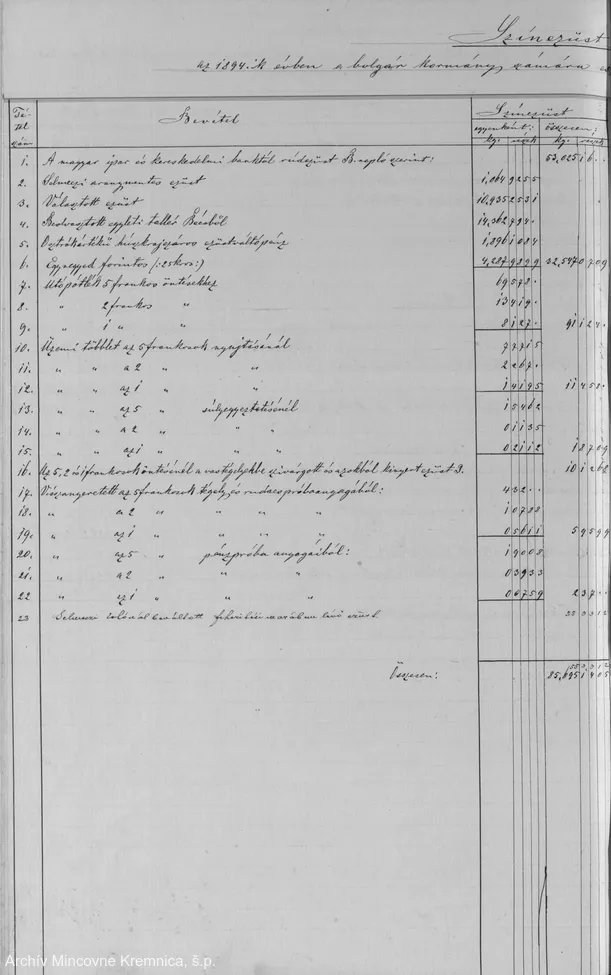 Színezüst
az 1894.ik évben a bolgár kormány számára
Tétel szám
Bevétel
Színezüst
egyenként: összesen:
kgr. részek kgr. részek
1. A magyar ipar és kereskedelmi banktól rúdezüst B. napló szerint: 53,025 16..
2. Selmeczi aranymentes ezüst 1,064 9255
3. Választott ezüst 10,935 2531
4. Beolvasztott egyleti tallér Bécsből 14,362 794.
5. Osztrákértékű húszkrajczáros ezüstváltópénz 1,896 1084
6. Egynegyed forintos (:25 kros:) 4,287 9899 32,547 0709
7. Utópótlék 5 frankos öntésekhez 69 578.
8. " 2 frankos " 13 419.
9. " 1 " " 8 127. 91 124.
10. Üzemi többlet az 5 frankosok nyujtásánál 7 7715
11. " " a 2 " " 2 267.
12. " " az 1 " " 1 4195 11 458.
13. " " az 5 " súlyegyeztetésénél 1 5462
14. " " a 2 " " " 0 1135
15. " " az 1 " " " 0 2112 1 8709
16. Az 5, 2 és 1 frankosok öntésénél a vastégelyekbe szivárgott és azokból kinyert ezüst 10 1262
17. Visszanyeretett az 5 frankosok tégely és rudacspróbaanyagából: 4 32..
18. " a 2 " " " " 1 0788
19. " az 1 " " " " 0 5611 5 9599
20. " az 5 " pénzpróba anyagaiból: 1 9008
21. " a 2 " " " 0 3933
22 " az 1 " " " 0 0759 2 37..
23 Selmeczi beváltott lévő ezüst 3312
3312
Összesen: 85,695 1405
Archív Mincovne Kremnica, š.p.